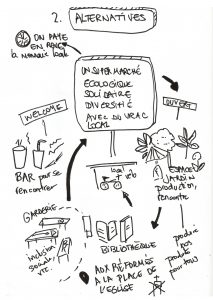 2. ALTERNATIVES
ON PAYE
EN
la monnaie locale
UN SUPERMARCHÉ
ÉCOLOGIQUE
SOLIDAIRE
DIVERSITIÉ
AVEC DU VRAC
LOCAL
WELCOME
OUVERT
BAR pour se
rencontrer
local
vélo
ESPACE
JARDIN
production,
rencontre
GARDERIE
inclusion
sociale,
etc.
BIBLIOTHEQUE
produire nos
produits
pour tous
AUX RÉFORMÉS
À LA PLACE DE
L'ÉGLISE